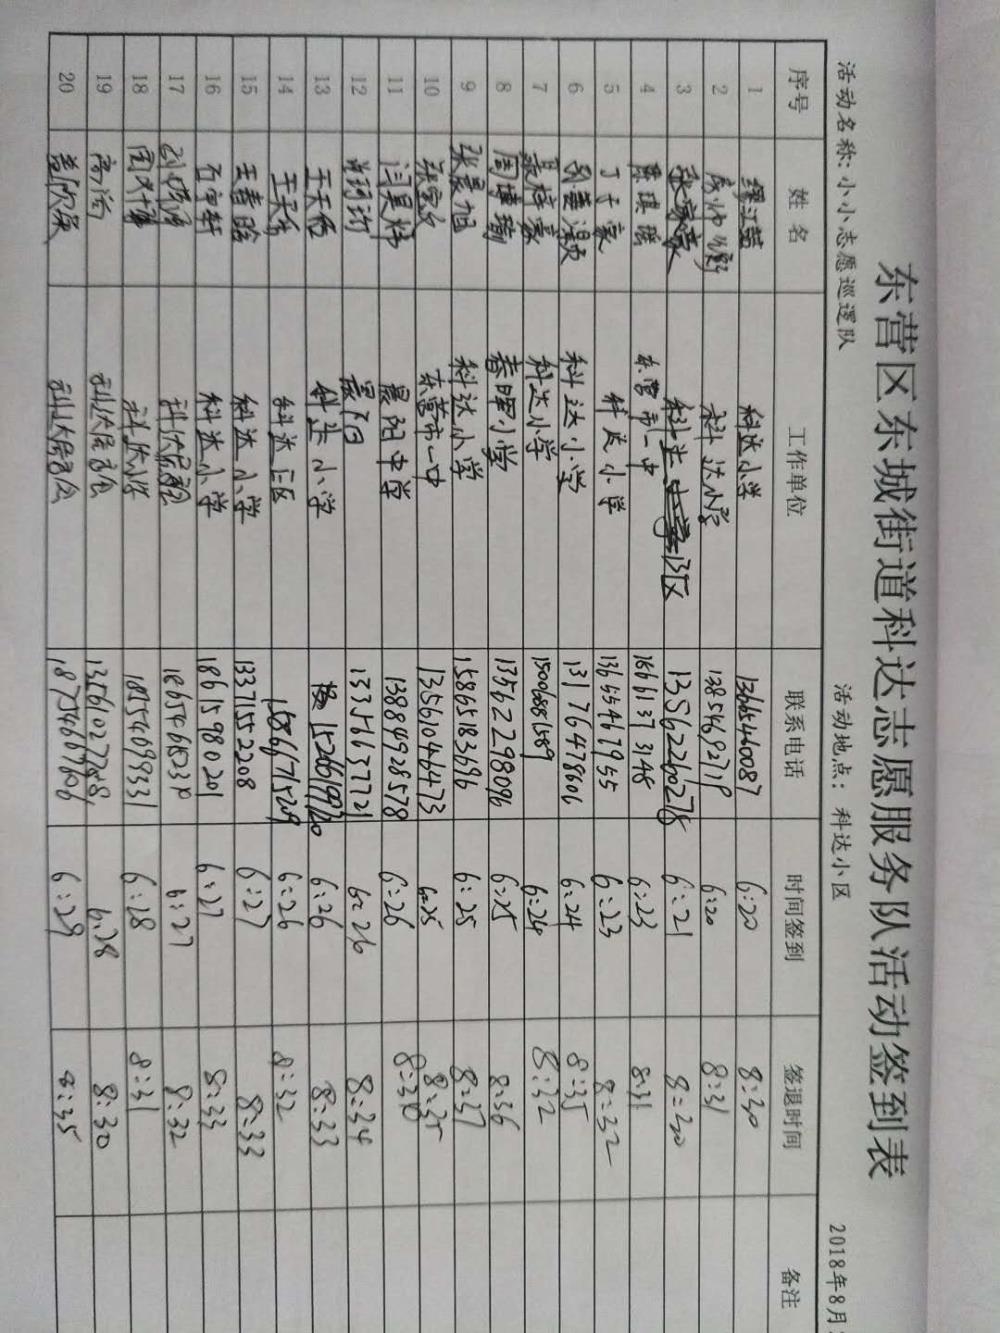 东营区东城街道科达志愿服务队活动签到表
活动名称：小小志愿巡逻队 活动地点：科达小区 2018年8月
序号 姓名 工作单位 联系电话 时间签到 签退时间 备注
1 科达小学 13654546087 6:20 8:30
2 科达小学 13854692719 6:20 8:31
3 张家豪 科达 13区 13562260278 6:21 8:30
4 陈琪雅 东营市一中 1661313148 6:23 8:31
5 丁子豪 科达小学 13655467955 6:23 8:32
6 科达小学 13176478606 6:24 8:35
7 聂梓豪 科达小学 15006881589 6:24 8:32
8 周博瑜 春晖小学 13562298096 6:25 8:36
9 张晨旭 科达小学 15865183696 6:25 8:37
10 东营市一中 13561046473 6:25 8:35
11 闫昊炜 晨阳中学 13884928578 6:26
12 晨阳 13356637721 6:26 8:34
13 王天佑 科达小学 6:26 8:33
14 科达三区 15866715209 6:26 8:32
15 王春晗 科达小学 13371552208 6:27 8:33
16 石宇轩 科达小学 18615980201 6:27 8:33
17 18654682310 6:27 8:32
18 科达小学 18554699331 6:28 8:31
19 科达居委会 13561027788 6:28 8:30
20 科达居委会 18754667606 6:29 8:35